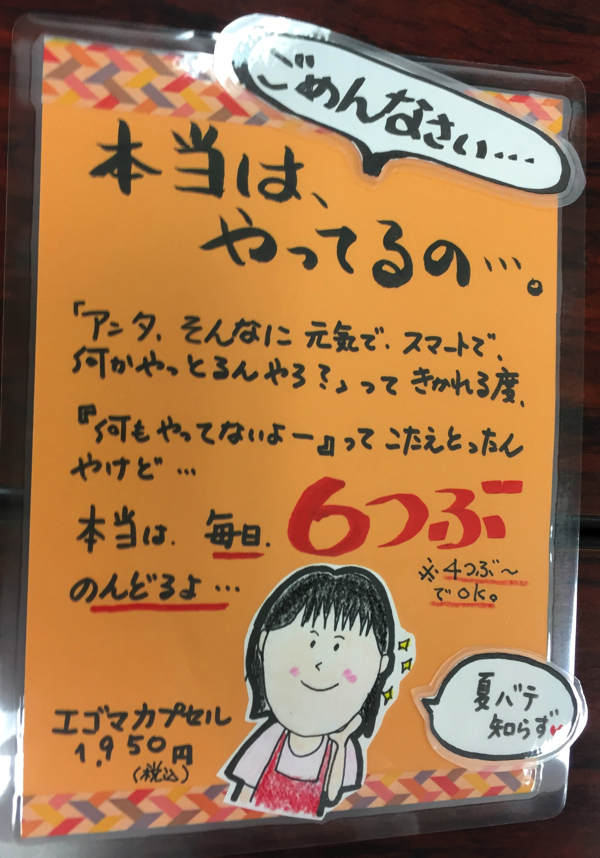 ごめんなさい…
本当は、
やってるの…。
「アンタ、そんなに元気で、スマートで、
何かやっとるんやろ?」って きかれる度、
『何もやってないよー』って こたえとったん
やけど…
本当は、毎日、6つぶ
のんどるよ…
※4つぶ〜
でOK。
エゴマカプセル
1,950円
(税込)
夏バテ
知らず